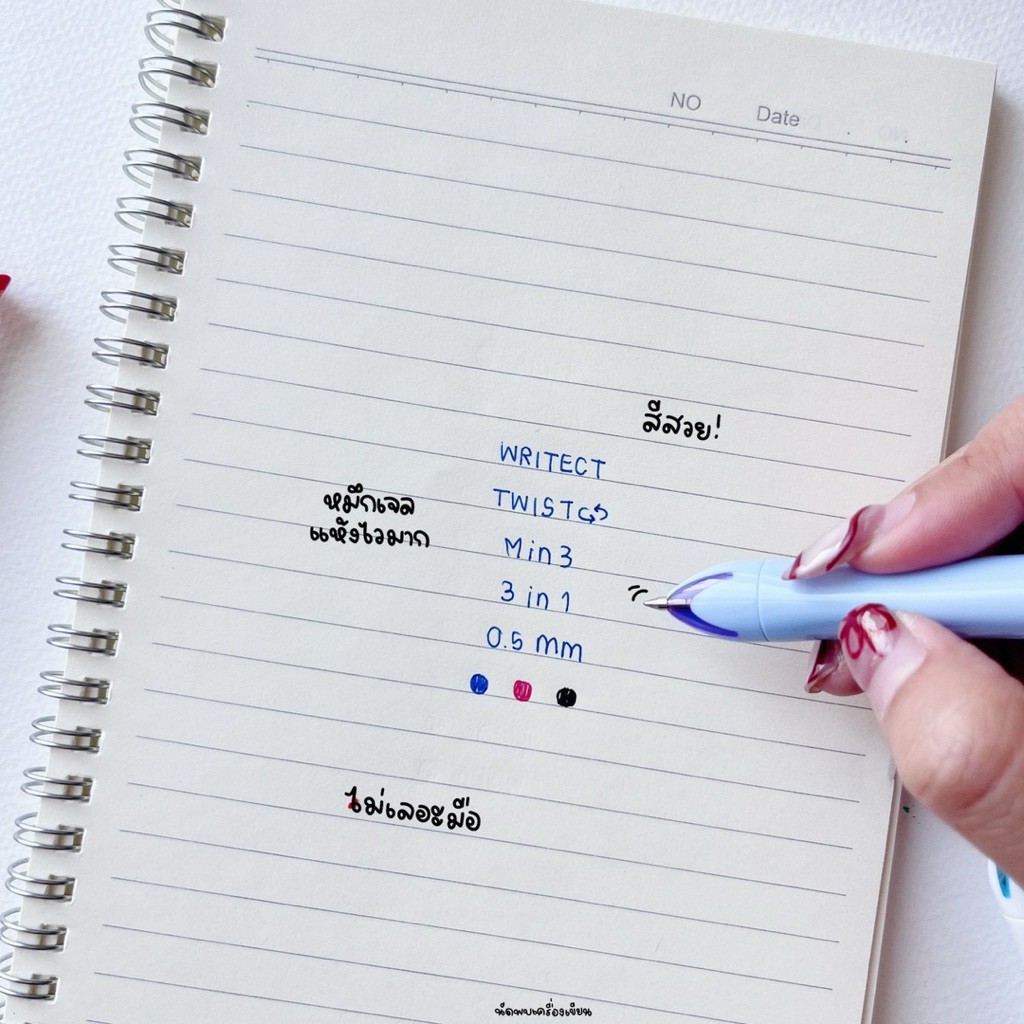 NO Date
สีสวย!
WRITECT
TWIST
หมึกเจล
แห้งไวมาก
Min 3
3 in 1
0.5 mm
ไม่เลอะมือ
นัดพบเครื่องเขียน